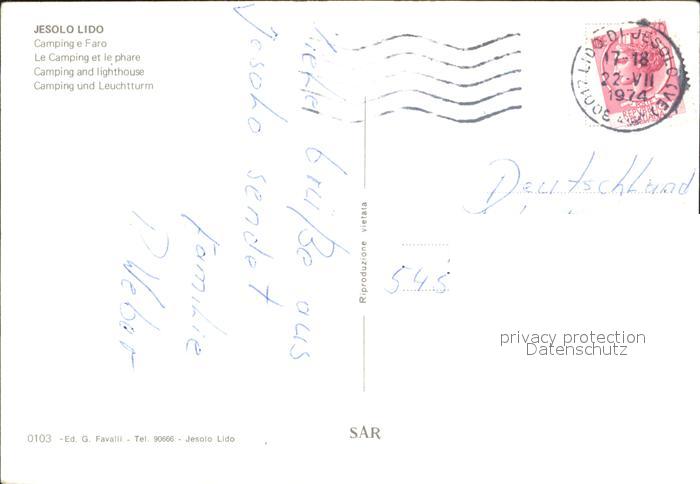 JESOLO LIDO
Camping e Faro
Le Camping et le phare
Camping and lighthouse
Camping und Leuchtturm
Grüße aus
Jesolo sendet
Familie
Weber
Riproduzione vietata
30017 LIDO DI JESOLO (VE)
17-18
22-VII
1974
Deutschland
545
privacy protection
Datenschutz
0103 - Ed. G. Favalli - Tel. 90666 - Jesolo Lido
SAR